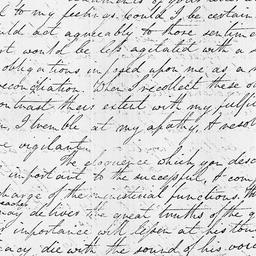 to my feelings. Could I be certain
ould not agreeably to those sentime
t would be less agitated with a s
obligations imposed upon me as a m
econciliation. When I recollect these o
ontrast their extent with my fulfi
n, I tremble at my apathy, & resol
e vigilant.
The eloquence which you desc
important to the successful, & com
charge of the ministerial functions. The
reacher
may deliver the great truths of the g
importance will lessen at his ton
cacy die with the sound of his voic